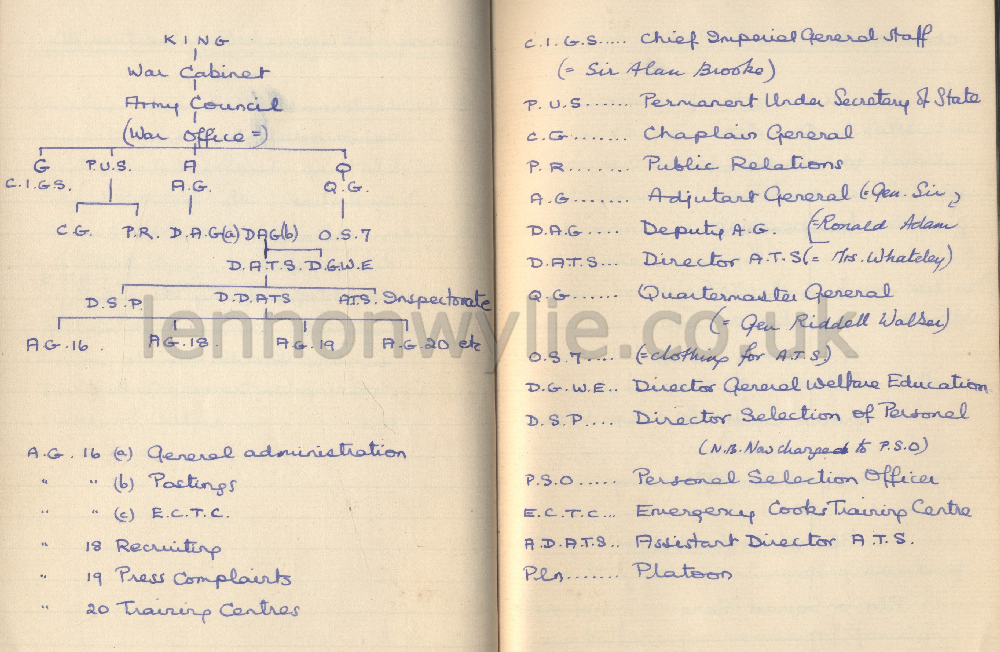 KING
War Cabinet
Army Council
(War Office =)
G P.U.S. A Q
C.I.G.S. A.G. Q.G.
C.G. P.R. D.A.G(a) DAG(b) O.S.7
D.A.T.S. D.G.W.E
D.S.P. D.D.ATS ATS. Inspectorate
A.G.16 A.G.18. A.G.19 A.G.20 etc
A.G. 16 (a) General administration
" " (b) Postings
" " (c) E.C.T.C.
" 18 Recruiting
" 19 Press Complaints
" 20 Training Centres
C.I.G.S..... Chief Imperial General Staff
(= Sir Alan Brooke)
P.U.S....... Permanent Under Secretary of State
C.G....... Chaplain General
P.R....... Public Relations
A.G....... Adjutant General (=Gen. Sir
D.A.G.... Deputy A.G. (=Ronald Adam
D.A.T.S... Director A.T.S (= Mrs. Whateley)
Q.G...... Quartermaster General
(= Gen Riddell Walser)
O.S.7.... (=clothing for A.T.S.)
D.G.W.E.. Director General Welfare Education
D.S.P.... Director Selection of Personel
(N.B. Now changed to P.S.O)
P.S.O..... Personel Selection Officer
E.C.T.C... Emergency Cooks Training Centre
A.D.A.T.S.. Assistant Director A.T.S.
Pln....... Platoon
lennonwylie.co.uk